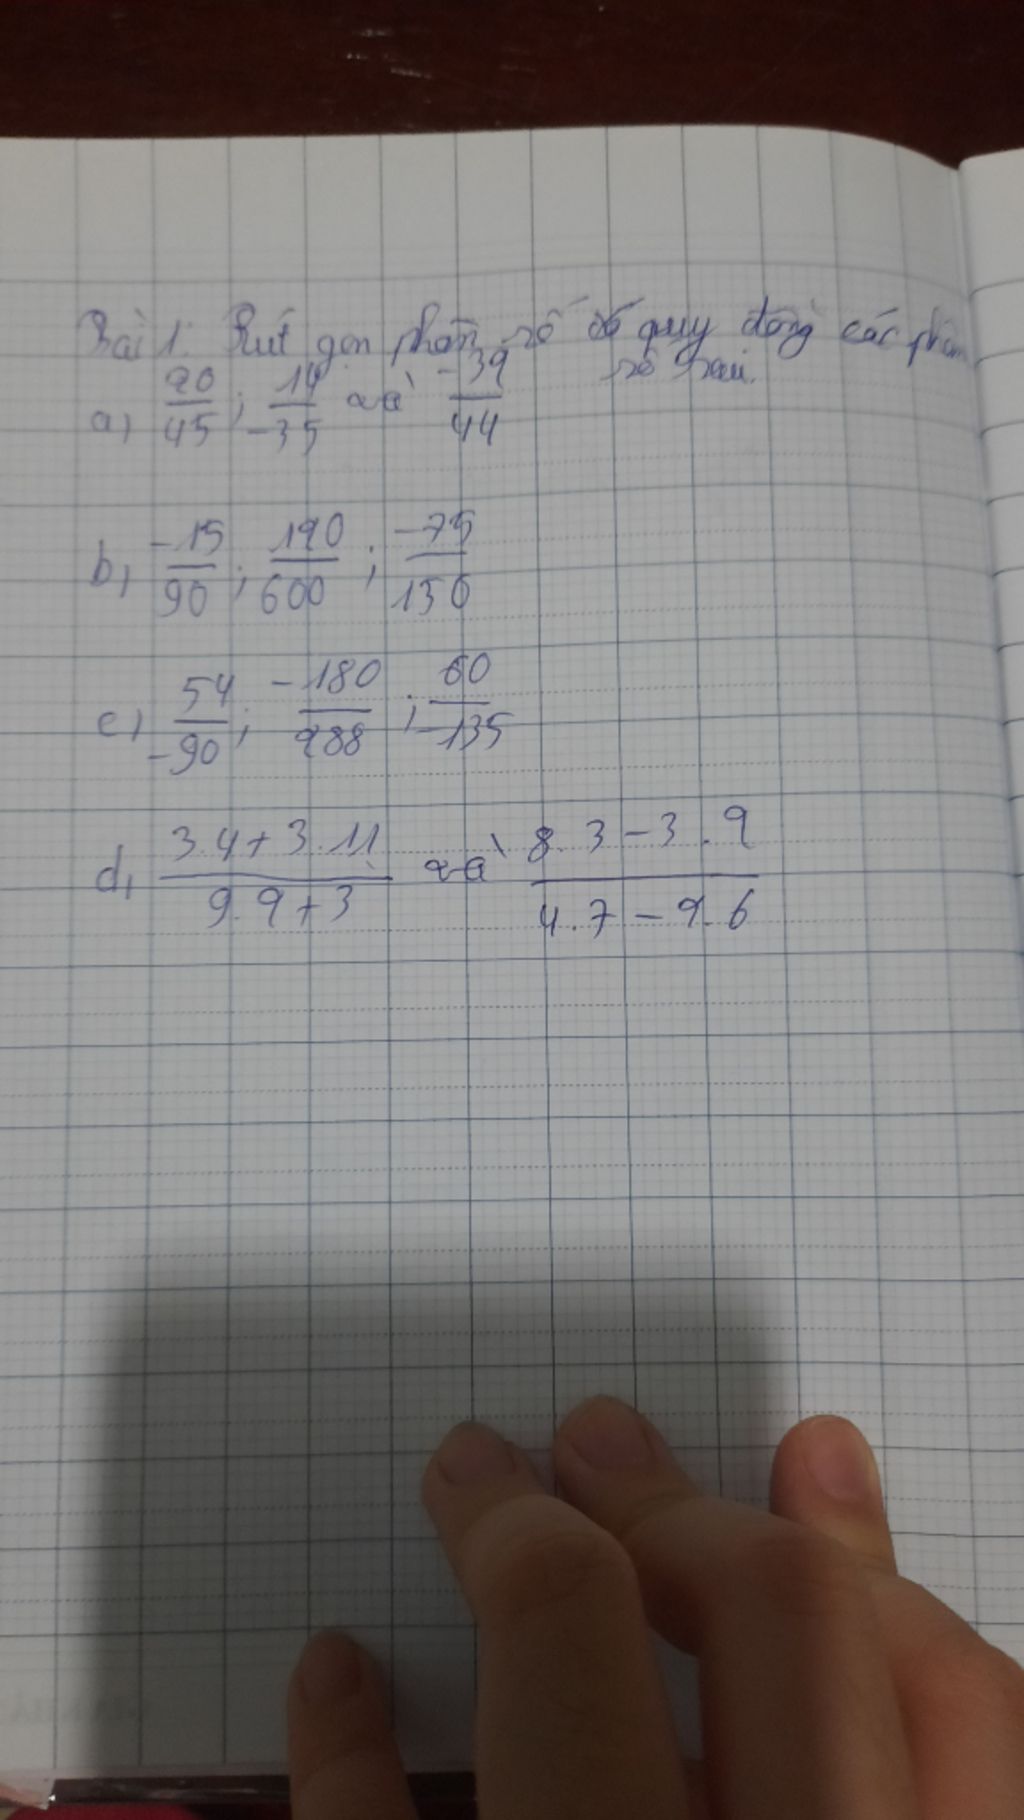 Bài 1: Rút gọn phân số rồi quy đồng các phân
số sau.
a, 20/45 ; 14/-35 và -39/44
b, -15/90 ; 120/600 ; -75/150
c, 54/-90 ; -180/288 ; 60/-135
d, 3.4+3.11/9.9+3 và 8.3-3.9/4.7-9.6